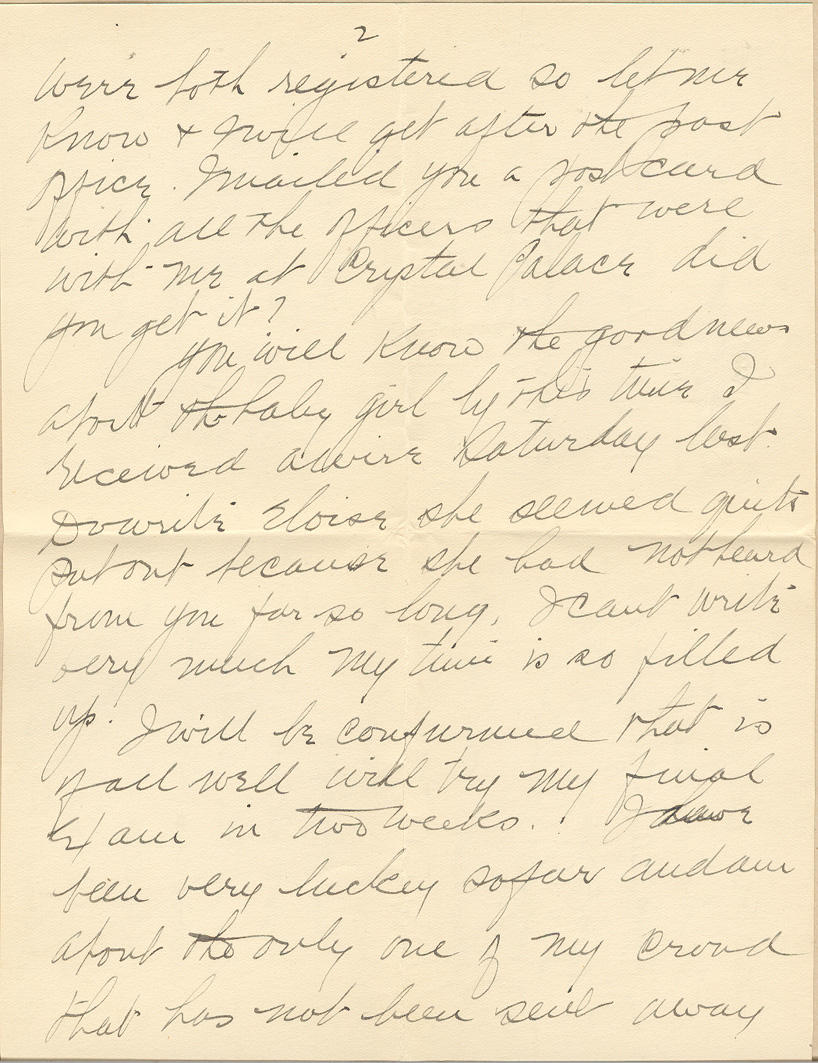 2
were both registered so let me
know & I will get after the post
office. I mailed you a post card
with all the officers that were
with me at Crystal Palace did
you get it?
you will know the good news
about the baby girl by this time I
received a wire Saturday last.
Do write Eloise she seemed quite
put out because she had not heard
from you for so long, I cant write
very much my time is so filled
up. I will be confirmed that is
if all well will try my final
Exam in two weeks. I have
been very luckey so far and am
about the only one of my crowd
that has not been sent away